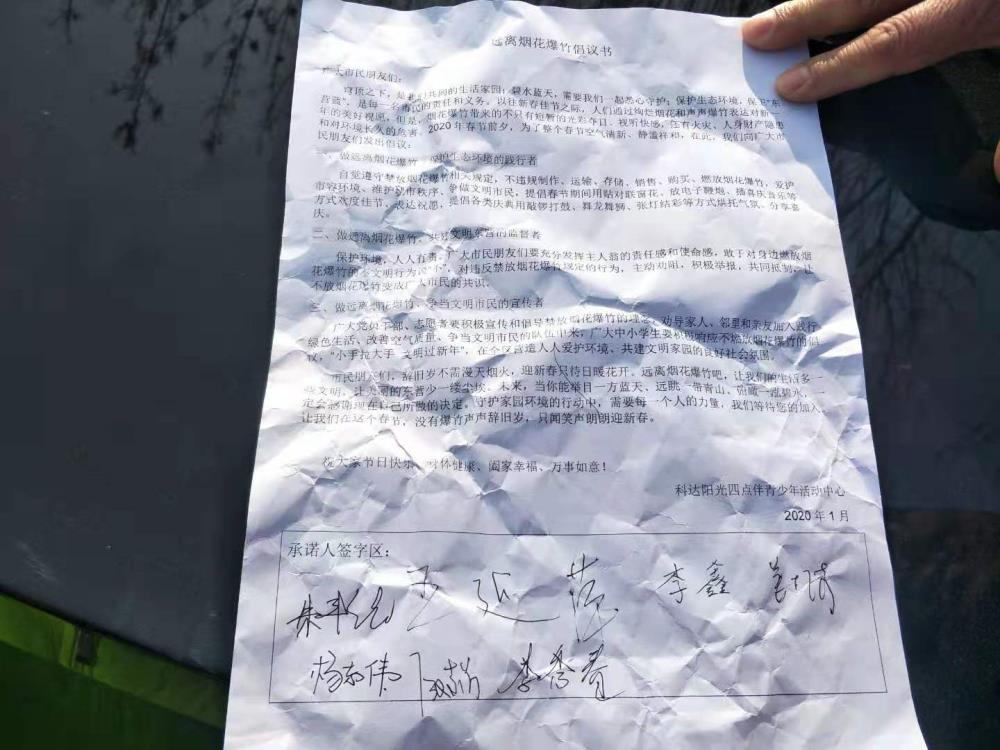 远离烟花爆竹倡议书
广大市民朋友们：
穹顶之下，是我们共同的生活家园；碧水蓝天，需要我们一起悉心守护；保护生态环境，保卫“东
营蓝”，是每一名市民的责任和义务。以往新春佳节之际，人们通过绚烂烟花和声声爆竹表达对新一
年的美好祝愿，但是，烟花爆竹带来的不只有短暂的光彩夺目、视听快感，还有火灾、人身财产隐患
和对环境长久的危害。2020年春节前夕，为了整个春节空气清新、静谧祥和，在此，我们向广大市
民朋友们发出倡议：
一、做远离烟花爆竹、保护生态环境的践行者
自觉遵守禁放烟花爆竹相关规定，不违规制作、运输、存储、销售、购买、燃放烟花爆竹，爱护
市容环境、维护城市秩序、争做文明市民，提倡春节期间用贴对联窗花、放电子鞭炮、播喜庆音乐等
方式欢度佳节、表达祝愿，提倡各类庆典用敲锣打鼓、舞龙舞狮、张灯结彩等方式烘托气氛、分享喜
庆。
二、做远离烟花爆竹、共建文明东营的监督者
保护环境，人人有责。广大市民朋友们要充分发挥主人翁的责任感和使命感，敢于对身边燃放烟
花爆竹的不文明行为说“不”，对违反禁放烟花爆竹规定的行为，主动劝阻，积极举报，共同抵制，让
不放烟花爆竹变成广大市民的共识。
三、做远离烟花爆竹、争当文明市民的宣传者
广大党员干部、志愿者要积极宣传和倡导禁放烟花爆竹的理念，劝导家人、邻里和亲友加入践行
绿色生活、改善空气质量、争当文明市民的队伍中来，广大中小学生要积极响应不燃放烟花爆竹的倡
议，“小手拉大手 文明过新年”，在全区营造人人爱护环境、共建文明家园的良好社会氛围。
市民朋友们，辞旧岁不需漫天烟火，迎新春只待日暖花开。远离烟花爆竹吧，让我们的生活多一
些文明，让美丽的东营少一缕尘埃。未来，当你能举目一方蓝天、远眺一带青山、俯瞰一泓碧水，一
定会感谢现在自己所做的决定，守护家园环境的行动中，需要每一个人的力量，我们等待您的加入，
让我们在这个春节，没有爆竹声声辞旧岁，只闻笑声朗朗迎新春。
祝大家节日快乐、身体健康、阖家幸福、万事如意！
科达阳光四点伴青少年活动中心
2020年1月
承诺人签字区：
李鑫
杨东伟 李秀青